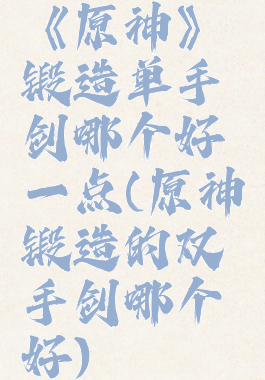 《原神》
锻造单手
剑哪个好
一点(原神
锻造的双
手剑哪个
好)